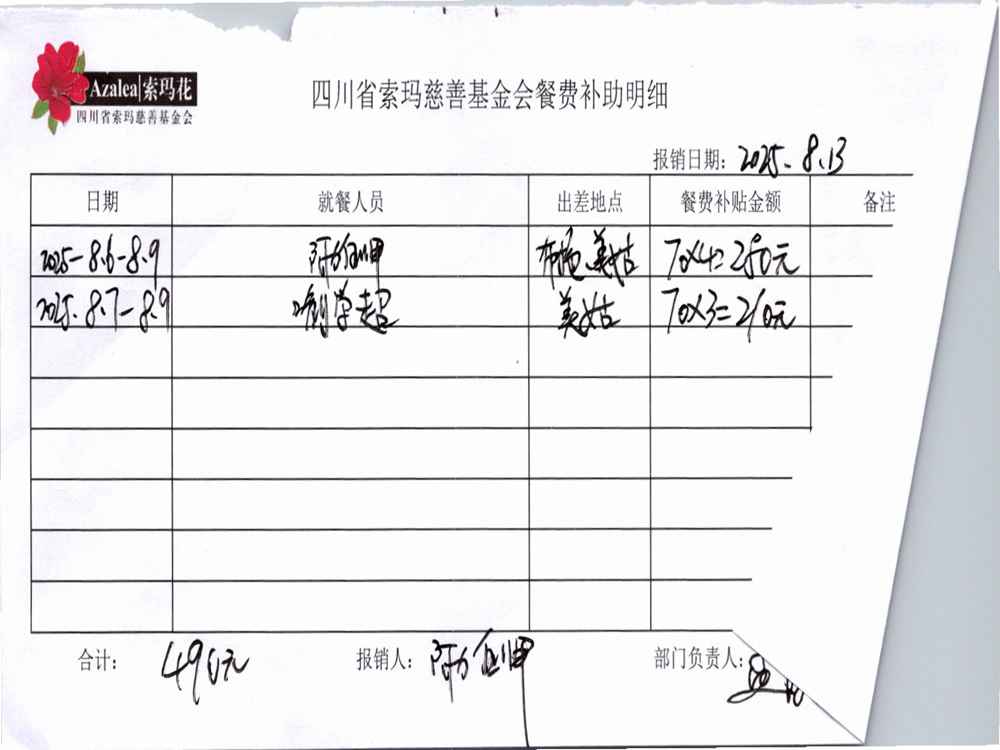 Azalea|索玛花
四川省索玛慈善基金会
四川省索玛慈善基金会餐费补助明细
报销日期: 2025.8.13
日期 就餐人员 出差地点 餐费补贴金额 备注
2025-8.6-8.9 美姑 70×4=280元
2025.8.7-8.9 学超 美姑 70×3=210元
合计: 490元 报销人: 部门负责人: